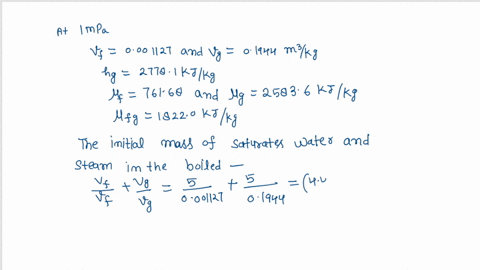 At 1mPa
Vf = 0.001127 and Vg = 0.1944 m³/kg
hg = 2778.1 KJ/kg
μf = 761.68 and μg = 2583.6 KJ/kg
μfg = 1822.0 KJ/kg
The initial mass of saturates water and
steam in the boiled —
Vf/Vf + Vg/Vg = 5/0.001127 + 5/0.1944 = (4.4